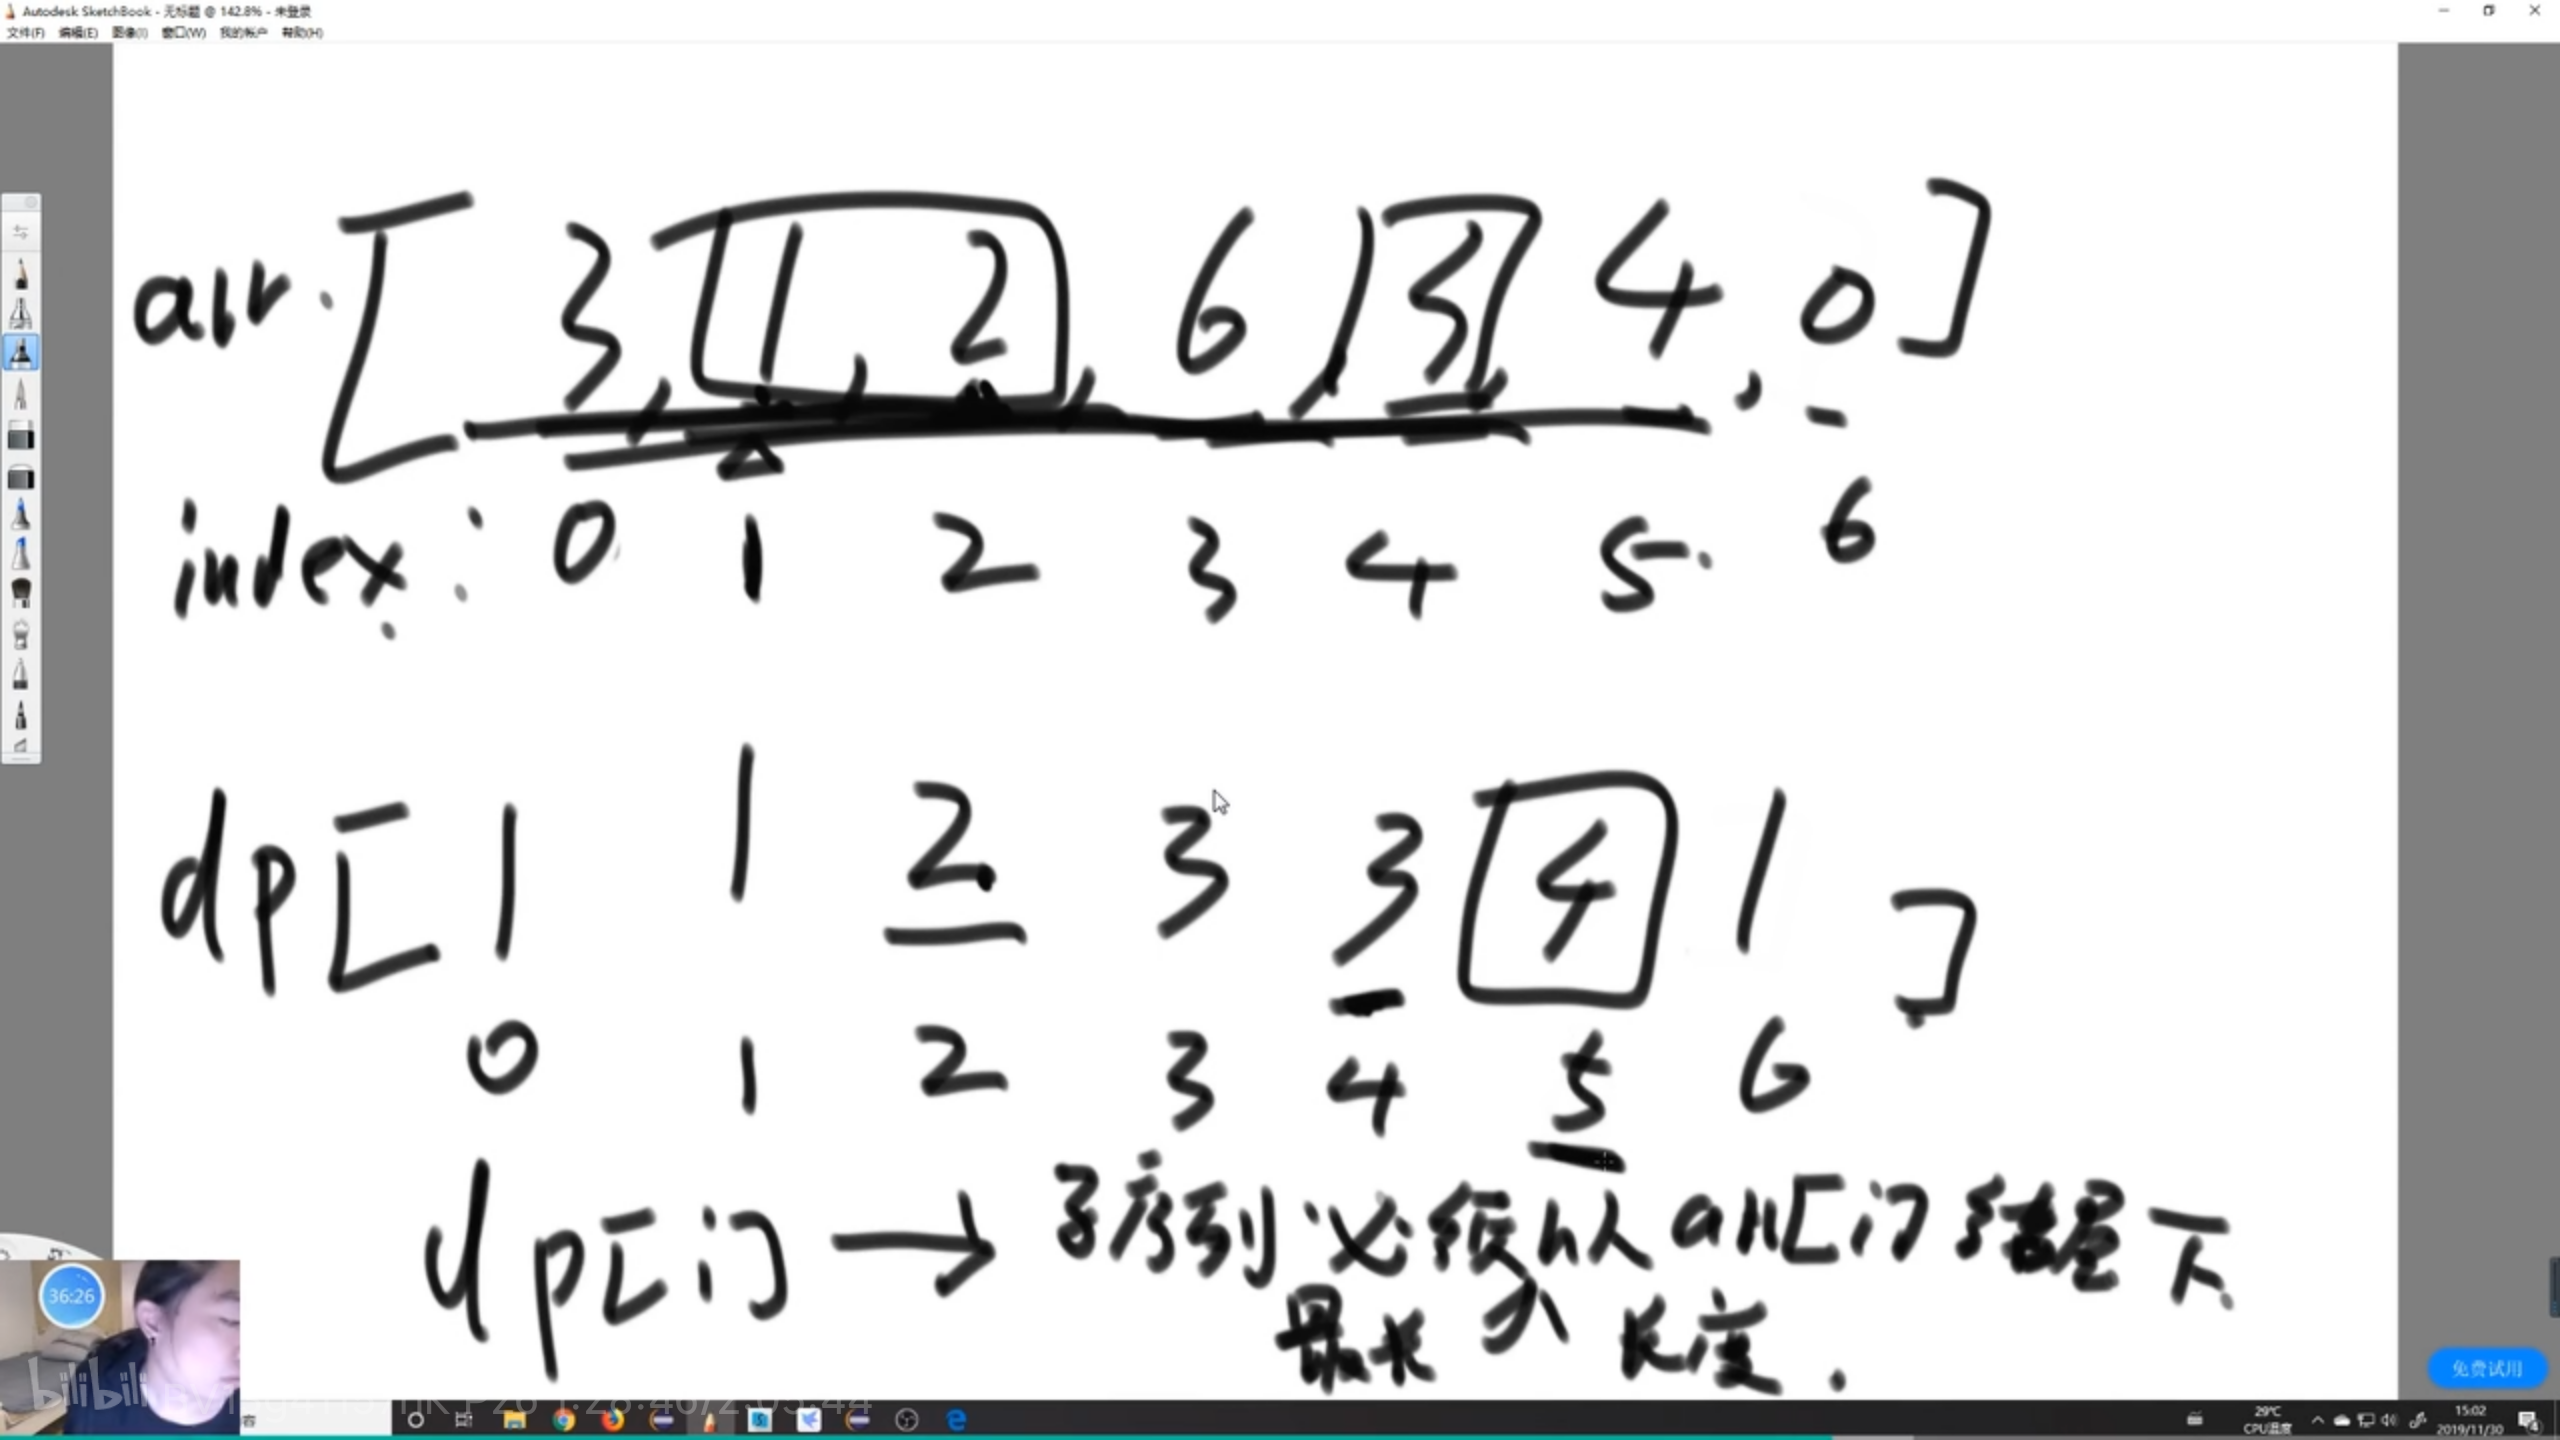 Autodesk SketchBook - 无标题 @ 142.8% - 未登录
文件(F) 编辑(E) 图像(I) 窗口(W) 我的帐户 帮助(H)
arr: [ 3, 1, 2, 6, 3, 4, 0 ]
index: 0 1 2 3 4 5 6
dp [ 1 1 2 3 3 4 1 ]
0 1 2 3 4 5 6
dp[i] → 子序列必须以 arr[i] 结尾下
最长 长度.
36:26
bilibili
免费试用
29℃
CPU温度
15:02
2019/11/30